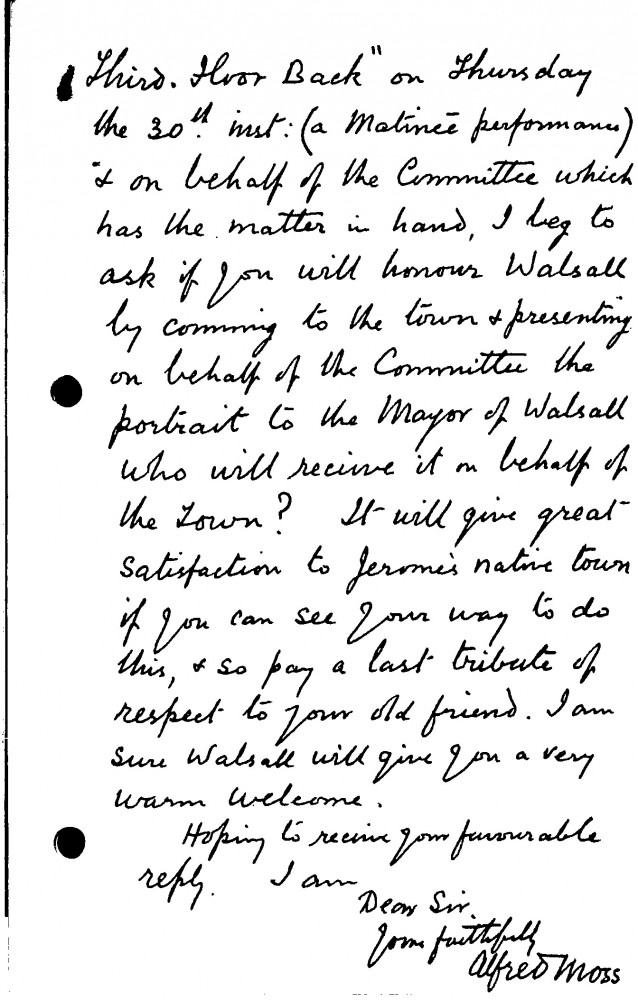 Third. Floor Back" on Thursday
the 30th. inst: (a Matineé performance)
& on behalf of the Committee which
has the matter in hand, I beg to
ask if you will honour Walsall
by comming to the town & presenting
on behalf of the Committee the
portrait to the Mayor of Walsall
who will recieve it on behalf of
the Town? It will give great
satisfaction to Jerome's native town
if you can see your way to do
this, & so pay a last tribute of
respect to your old friend. I am
sure Walsall will give you a very
warm welcome.
Hoping to recieve your favourable
reply. I am
Dear Sir.
Yours faithfully
Alfred Moss